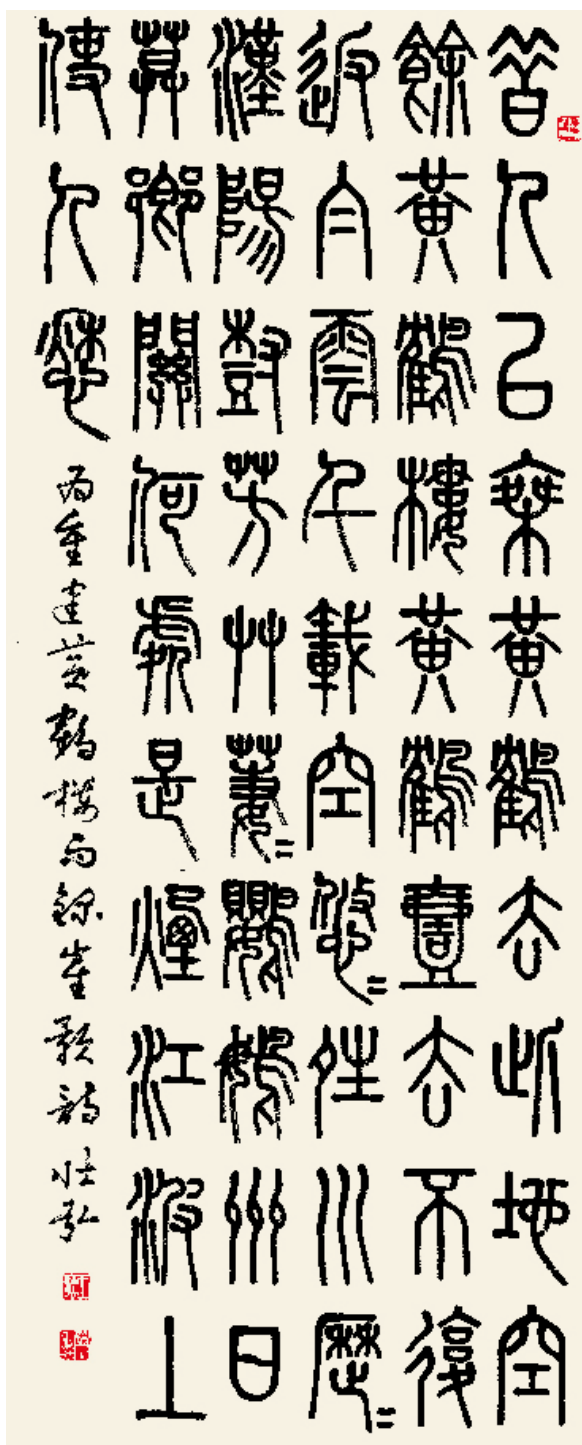 昔人已乘黃鶴去此地空
餘黃鶴樓黃鶴壹去不復
返白雲千載空悠〻夝川歷〻
漢陽尌芳艸萋〻鸚鵡州日
莫鄉關何處是煙江波上
使人愁
為重建黃鶴樓而錄崔顥詩 壮弘